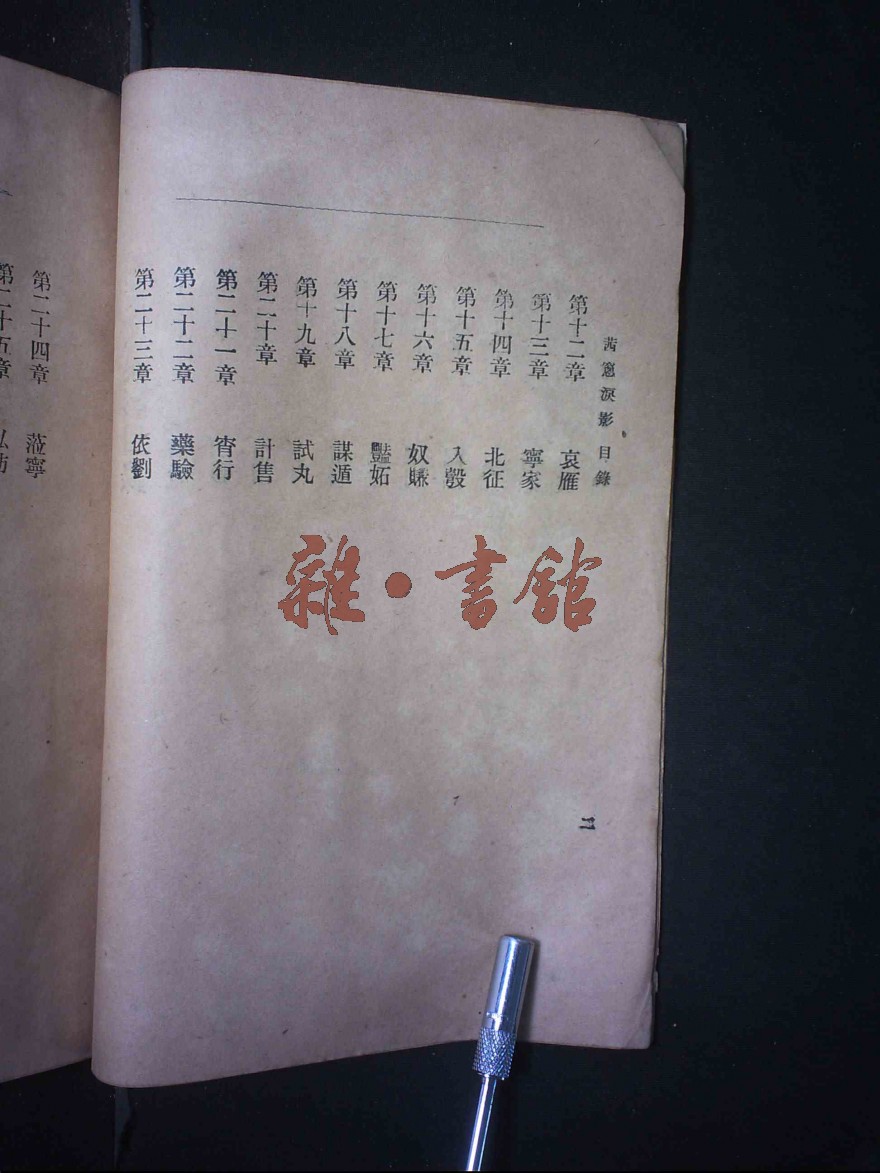 茜窻淚影 目錄
第十二章 哀雁
第十三章 寧家
第十四章 北征
第十五章 入彀
第十六章 奴賺
第十七章 豔妬
第十八章 謀遁
第十九章 試丸
第二十章 計售
第二十一章 宵行
第二十二章 藥驗
第二十三章 依劉
二
第二十四章 蒞寧
第二十五章
雜·書館